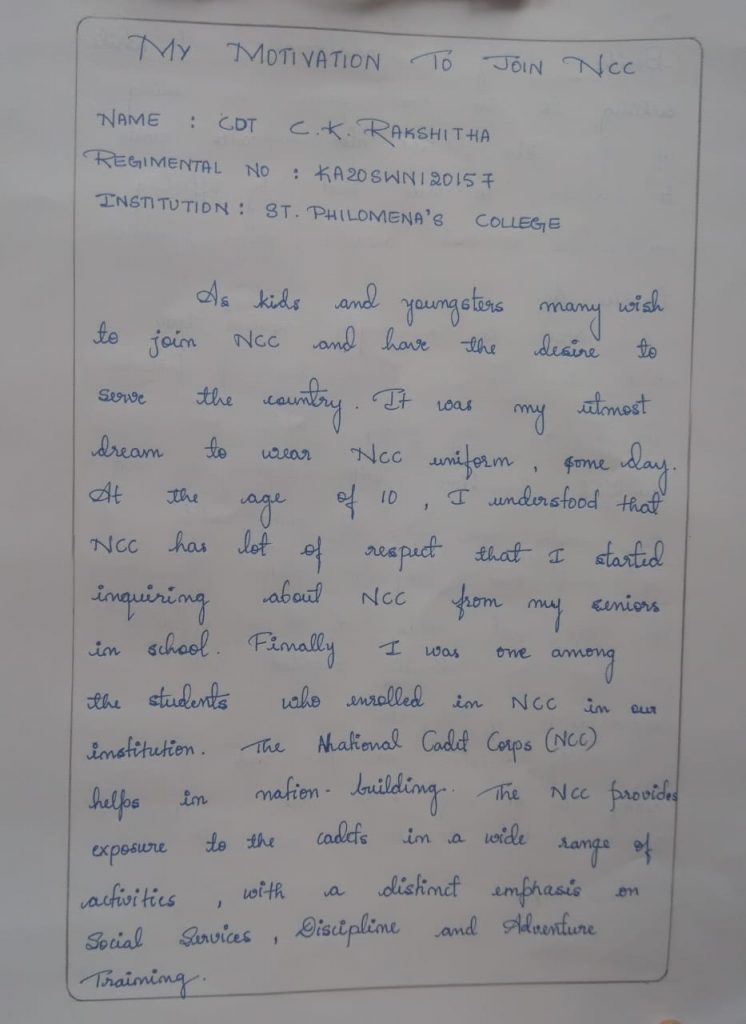 MY MOTIVATION TO JOIN NCC
NAME : CDT C.K. RAKSHITHA
REGIMENTAL NO : KA20SWN120157
INSTITUTION : ST. PHILOMENA'S COLLEGE
As kids and youngsters many wish
to join NCC and have the desire to
serve the country. It was my utmost
dream to wear NCC uniform , some day.
At the age of 10 , I understood that
NCC has lot of respect that I started
inquiring about NCC from my seniors
in school. Finally I was one among
the students who enrolled in NCC in our
institution. The National Cadet Corps (NCC)
helps in nation-building. The NCC provides
exposure to the cadets in a wide range of
activities , with a distinct emphasis on
Social Services , Discipline and Adventure
Training.